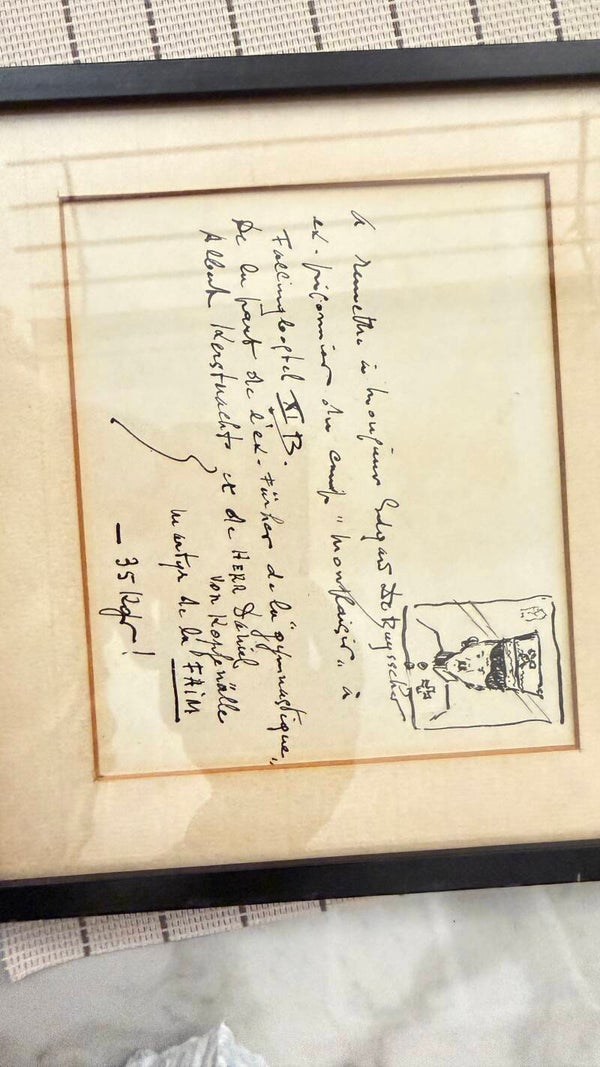 à remettre à monsieur Edgard De Ruysscher
ex-prisonnier du camp "monplaisir" à
Fallingbostel XI B.
De la part de l'ex-Führer de la "gymnastique"
Albert et de HERR Daniel
von
martyr de la FAIM
- 35 Kgr!